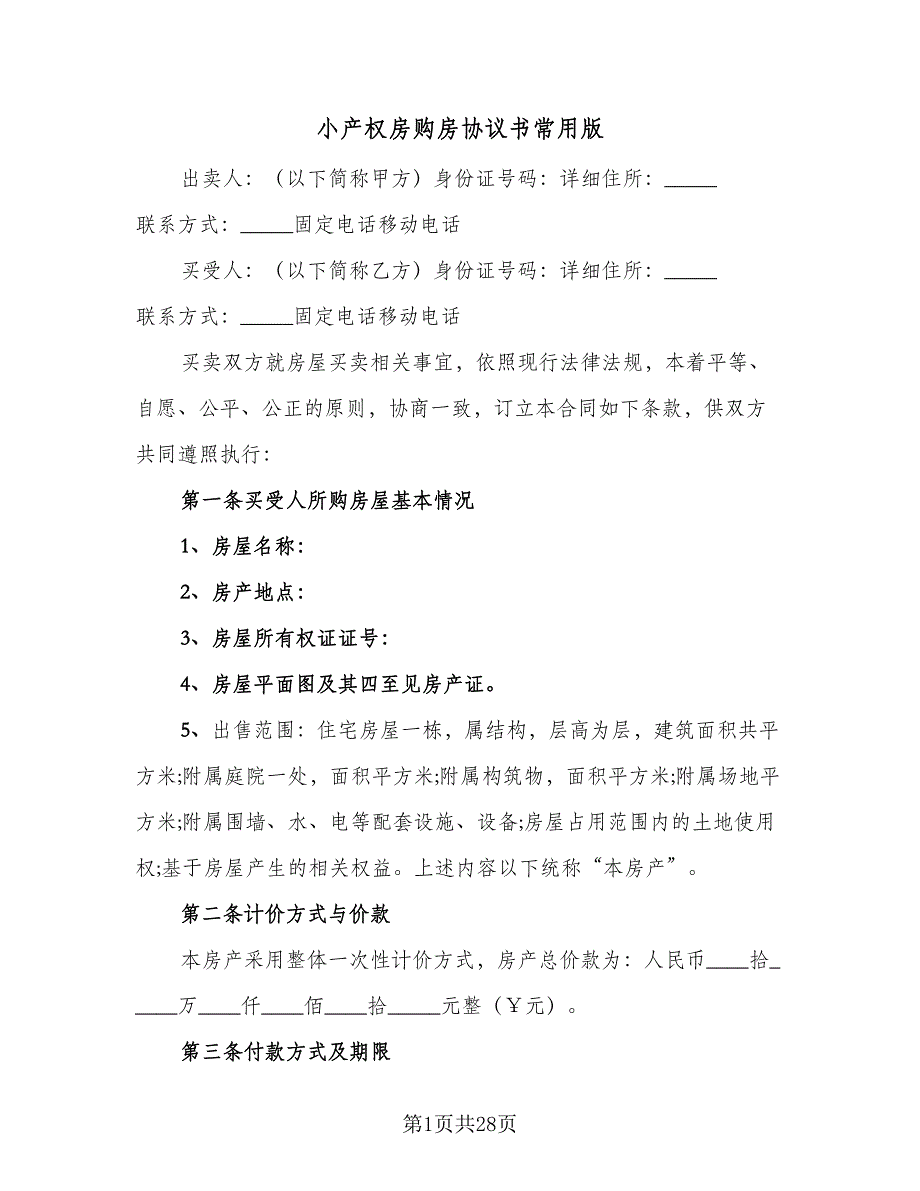 小产权房购房协议书常用版
出卖人：（以下简称甲方）身份证号码：详细住所：_____
联系方式：_____固定电话移动电话
买受人：（以下简称乙方）身份证号码：详细住所：_____
联系方式：_____固定电话移动电话
买卖双方就房屋买卖相关事宜，依照现行法律法规，本着平等、
自愿、公平、公正的原则，协商一致，订立本合同如下条款，供双方
共同遵照执行：
第一条买受人所购房屋基本情况
1、房屋名称：
2、房产地点：
3、房屋所有权证证号：
4、房屋平面图及其四至见房产证。
5、出售范围：住宅房屋一栋，属结构，层高为层，建筑面积共平
方米;附属庭院一处，面积平方米;附属构筑物，面积平方米;附属场地平
方米;附属围墙、水、电等配套设施、设备;房屋占用范围内的土地使用
权;基于房屋产生的相关权益。上述内容以下统称“本房产”。
第二条计价方式与价款
本房产采用整体一次性计价方式，房产总价款为：人民币____拾_
____万____仟____佰____拾_____元整（￥元）。
第三条付款方式及期限
第1页共28页